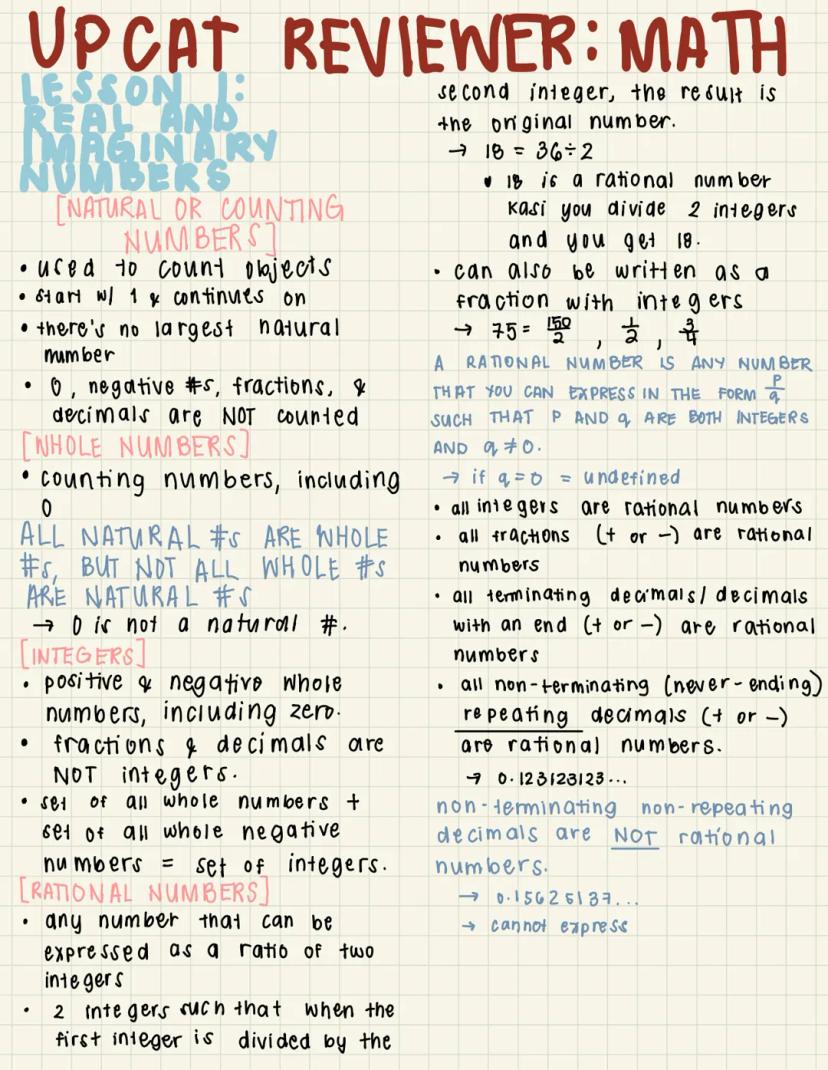 UPCAT REVIEWER: MATH
LESSON 1:
REAL AND
IMAGINARY
NUMBERS
[NATURAL OR COUNTING
NUMBERS]
• used to count objects
• start w/ 1 & continues on
• there's no largest natural
number
• 0, negative #s, fractions, &
decimals are NOT counted
[WHOLE NUMBERS]
• counting numbers, including
0
ALL NATURAL #s ARE WHOLE
#s, BUT NOT ALL WHOLE #s
ARE NATURAL #s
→ 0 is not a natural #.
[INTEGERS]
• positive & negative whole
numbers, including zero.
• fractions & decimals are
NOT integers.
• set of all whole numbers +
set of all whole negative
numbers = set of integers.
[RATIONAL NUMBERS]
• any number that can be
expressed as a ratio of two
integers
• 2 integers such that when the
first integer is divided by the
second integer, the result is
the original number.
→ 18 = 36÷2
• 18 is a rational number
kasi you divide 2 integers
and you get 18.
• can also be written as a
fraction with integers
→ 75 = 150/2, 1/2, 3/4
A RATIONAL NUMBER IS ANY NUMBER
THAT YOU CAN EXPRESS IN THE FORM P/q
SUCH THAT P AND q ARE BOTH INTEGERS
AND q ≠ 0.
→ if q=0 = undefined
• all integers are rational numbers
• all fractions (+ or −) are rational
numbers
• all terminating decimals/decimals
with an end (+ or −) are rational
numbers
• all non-terminating (never-ending)
repeating decimals (+ or −)
are rational numbers.
→ 0.123123123...
non-terminating non-repeating
decimals are NOT rational
numbers.
→ 0.15625137...
→ cannot express